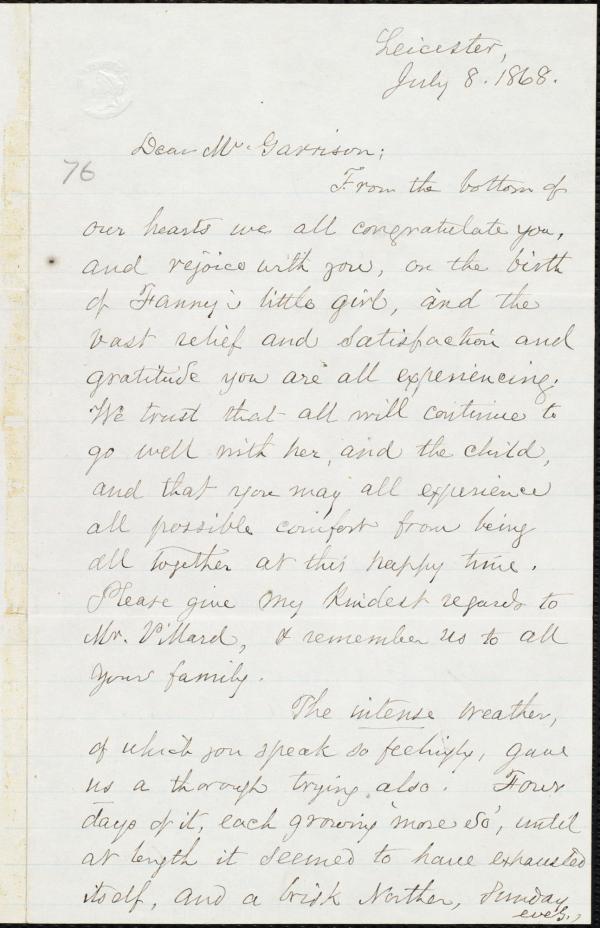 Leicester,
July 8. 1868.
76
Dear Mr. Garrison;
From the bottom of
our hearts we all congratulate you,
and rejoice with you, on the birth
of Fanny's little girl, and the
vast relief and satisfaction and
gratitude you are all experiencing.
We trust that all will continue to
go well with her, and the child,
and that you may all experience
all possible comfort from being
all together at this happy time.
Please give my kindest regards to
Mr. Villard, & remember us to all
your family.
The intense weather,
of which you speak so feelingly, gave
us a thorough trying also. Four
days of it, each growing 'more so', until
at length it seemed to have exhausted
itself, and a brisk Norther, Sunday
eve'g.,